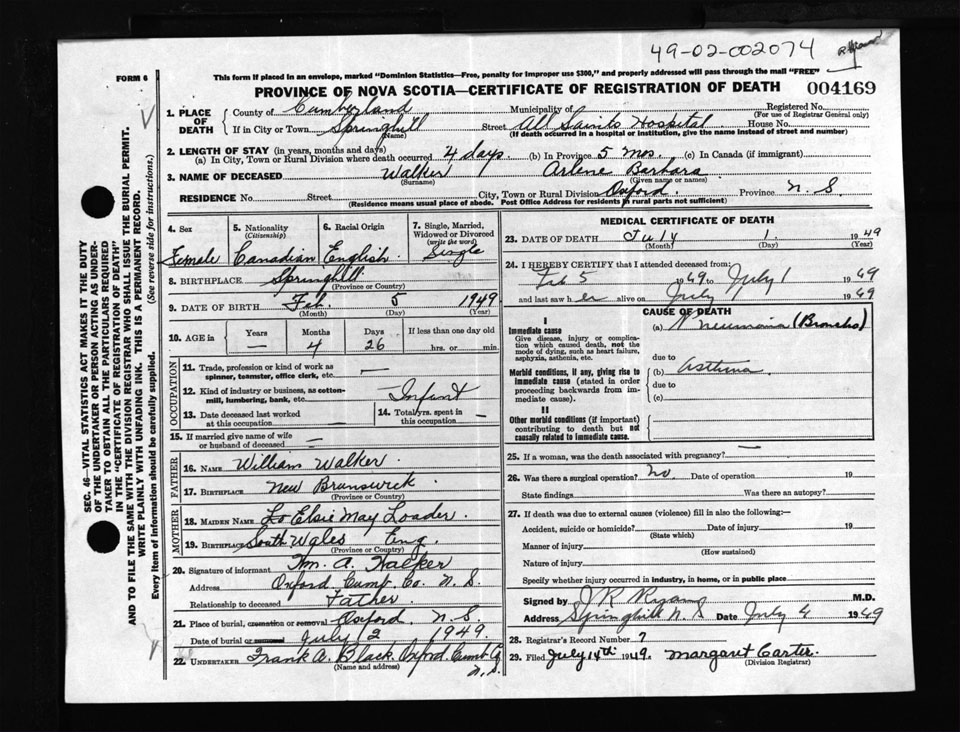 49-02-002074
FORM 6
This form if placed in an envelope, marked "Dominion Statistics—Free, penalty for improper use $300," and properly addressed will pass through the mail "FREE"
PROVINCE OF NOVA SCOTIA—CERTIFICATE OF REGISTRATION OF DEATH 004169
1. PLACE OF DEATH
County of Cumberland Municipality of Registered No.
(For use of Registrar General only)
If in City or Town Springhill Street All Saints Hospital House No.
(Name) (If death occurred in a hospital or institution, give the name instead of street and number)
2. LENGTH OF STAY (in years, months and days)
(a) In City, Town or Rural Division where death occurred 4 days. (b) In Province 5 mos. (c) In Canada (if immigrant)
3. NAME OF DECEASED Walker Arlene Barbara
(Surname) (Given name or names)
RESIDENCE No. Street City, Town or Rural Division Oxford. Province N.S.
(Residence means usual place of abode. Post Office Address for residents in rural parts not sufficient)
4. Sex
Female
5. Nationality
(Citizenship)
Canadian
6. Racial Origin
English
7. Single, Married,
Widowed or Divorced
(write the word)
Single
8. BIRTHPLACE Springhill
(Province or Country)
9. DATE OF BIRTH Feb. 5 1949
(Month) (Day) (Year)
10. AGE in
Years Months Days If less than one day old
— 4 26 hrs. or min.
OCCUPATION
11. Trade, profession or kind of work as
spinner, teamster, office clerk, etc. —
12. Kind of industry or business, as cotton-
mill, lumbering, bank, etc. Infant
13. Date deceased last worked
at this occupation
14. Total yrs. spent in
this occupation —
15. If married give name of wife
or husband of deceased —
FATHER
16. NAME William Walker.
17. BIRTHPLACE New Brunswick.
(Province or Country)
MOTHER
18. MAIDEN NAME Elsie May Loader.
19. BIRTHPLACE South Wales Eng.
(Province or Country)
20. Signature of informant Wm. A. Walker
Address Oxford. Cumb. Co. N.S.
Relationship to deceased Father.
21. Place of burial, cremation or removal Oxford. N.S.
Date of burial or removal July 2 1949.
22. UNDERTAKER Frank A. Black. Oxford. Cumb. Co
(Name and address) N.S.
MEDICAL CERTIFICATE OF DEATH
23. DATE OF DEATH July 1. 1949
(Month) (Day) (Year)
24. I HEREBY CERTIFY that I attended deceased from:
Feb 5 1949 to July 1 1949
and last saw her alive on July 1949
CAUSE OF DEATH
I
Immediate cause
Give disease, injury or complica-
tion which caused death, not the
mode of dying, such as heart failure,
asphyxia, asthenia, etc.
(a) Pneumonia (Broncho)
due to
Morbid conditions, if any, giving rise to
immediate cause (stated in order
proceeding backwards from im-
mediate cause).
(b) Asthma.
due to
(c)
II
Other morbid conditions (if important)
contributing to death but not
causally related to immediate cause.
25. If a woman, was the death associated with pregnancy? —
26. Was there a surgical operation? No. Date of operation 19
State findings Was there an autopsy?
27. If death was due to external causes (violence) fill in also the following:—
Accident, suicide or homicide? Date of injury 19
(State which)
Manner of injury
(How sustained)
Nature of injury
Specify whether injury occurred in industry, in home, or in public place
Signed by J R Ryan M.D.
Address Springhill N.S Date July 4 1949
28. Registrar's Record Number 7
29. Filed July 14th 1949. Margaret Carter.
(Division Registrar)
SEC. 46—VITAL STATISTICS ACT MAKES IT THE DUTY
OF THE UNDERTAKER OR PERSON ACTING AS UNDER-
TAKER TO OBTAIN ALL THE PARTICULARS REQUIRED
IN THE "CERTIFICATE OF REGISTRATION OF DEATH"
AND TO FILE THE SAME WITH THE DIVISION REGISTRAR WHO SHALL ISSUE THE BURIAL PERMIT.
WRITE PLAINLY WITH UNFADING INK. THIS IS A PERMANENT RECORD.
Every item of information should be carefully supplied. (See reverse side for instructions.)